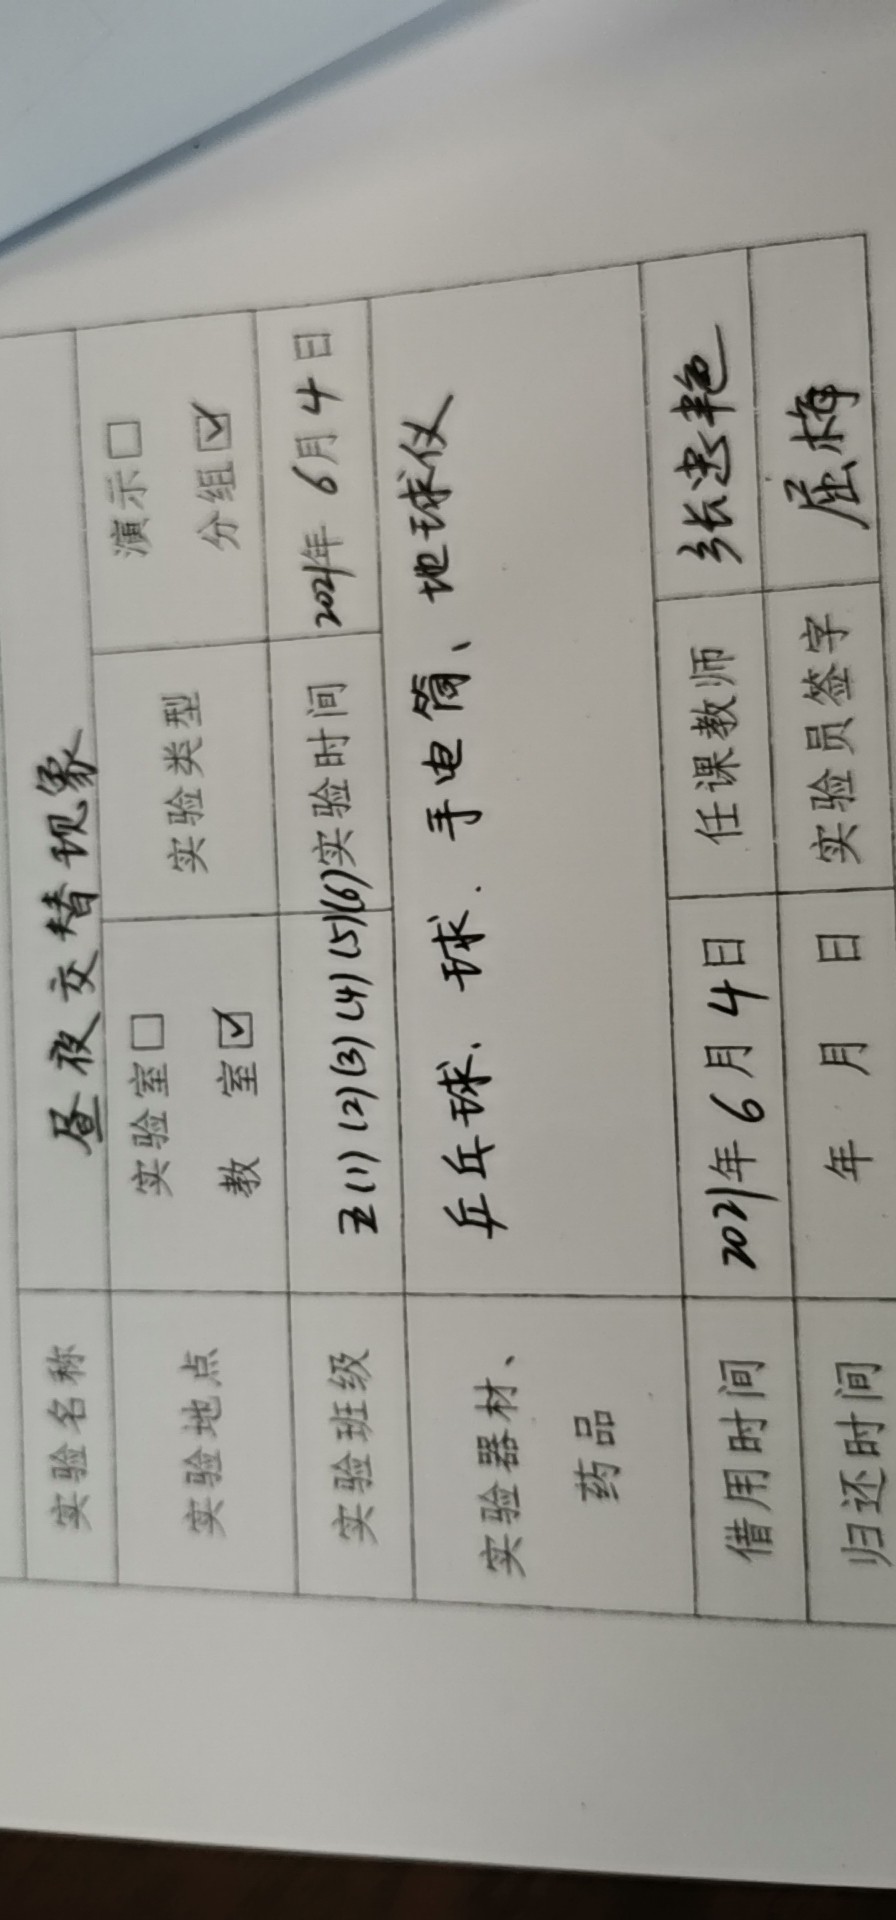 实验名称 昼夜交替现象
实验地点 实验室□ 教 室☑ 实验类型 演示□ 分组☑
实验班级 五(1)(2)(3)(4)(5)(6) 实验时间 2021年 6月 4日
实验器材、药品 乒乓球、球、手电筒、地球仪
借用时间 2021年 6月 4日 任课教师 张忠艳
归还时间 年 月 日 实验员签字 屈梅